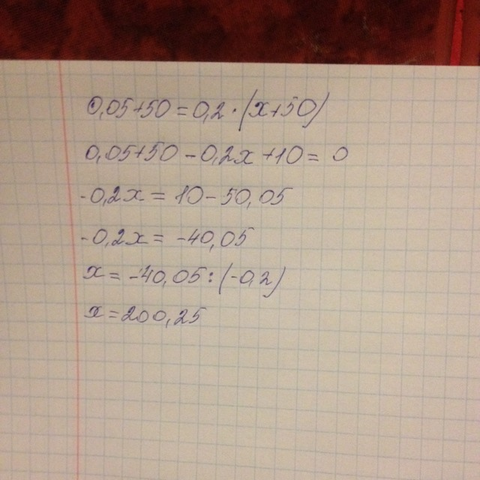 0,05+50=0,2·(x+50)
0,05+50-0,2x+10=0
-0,2x=10-50,05
-0,2x=-40,05
x=-40,05:(-0,2)
x=200,25